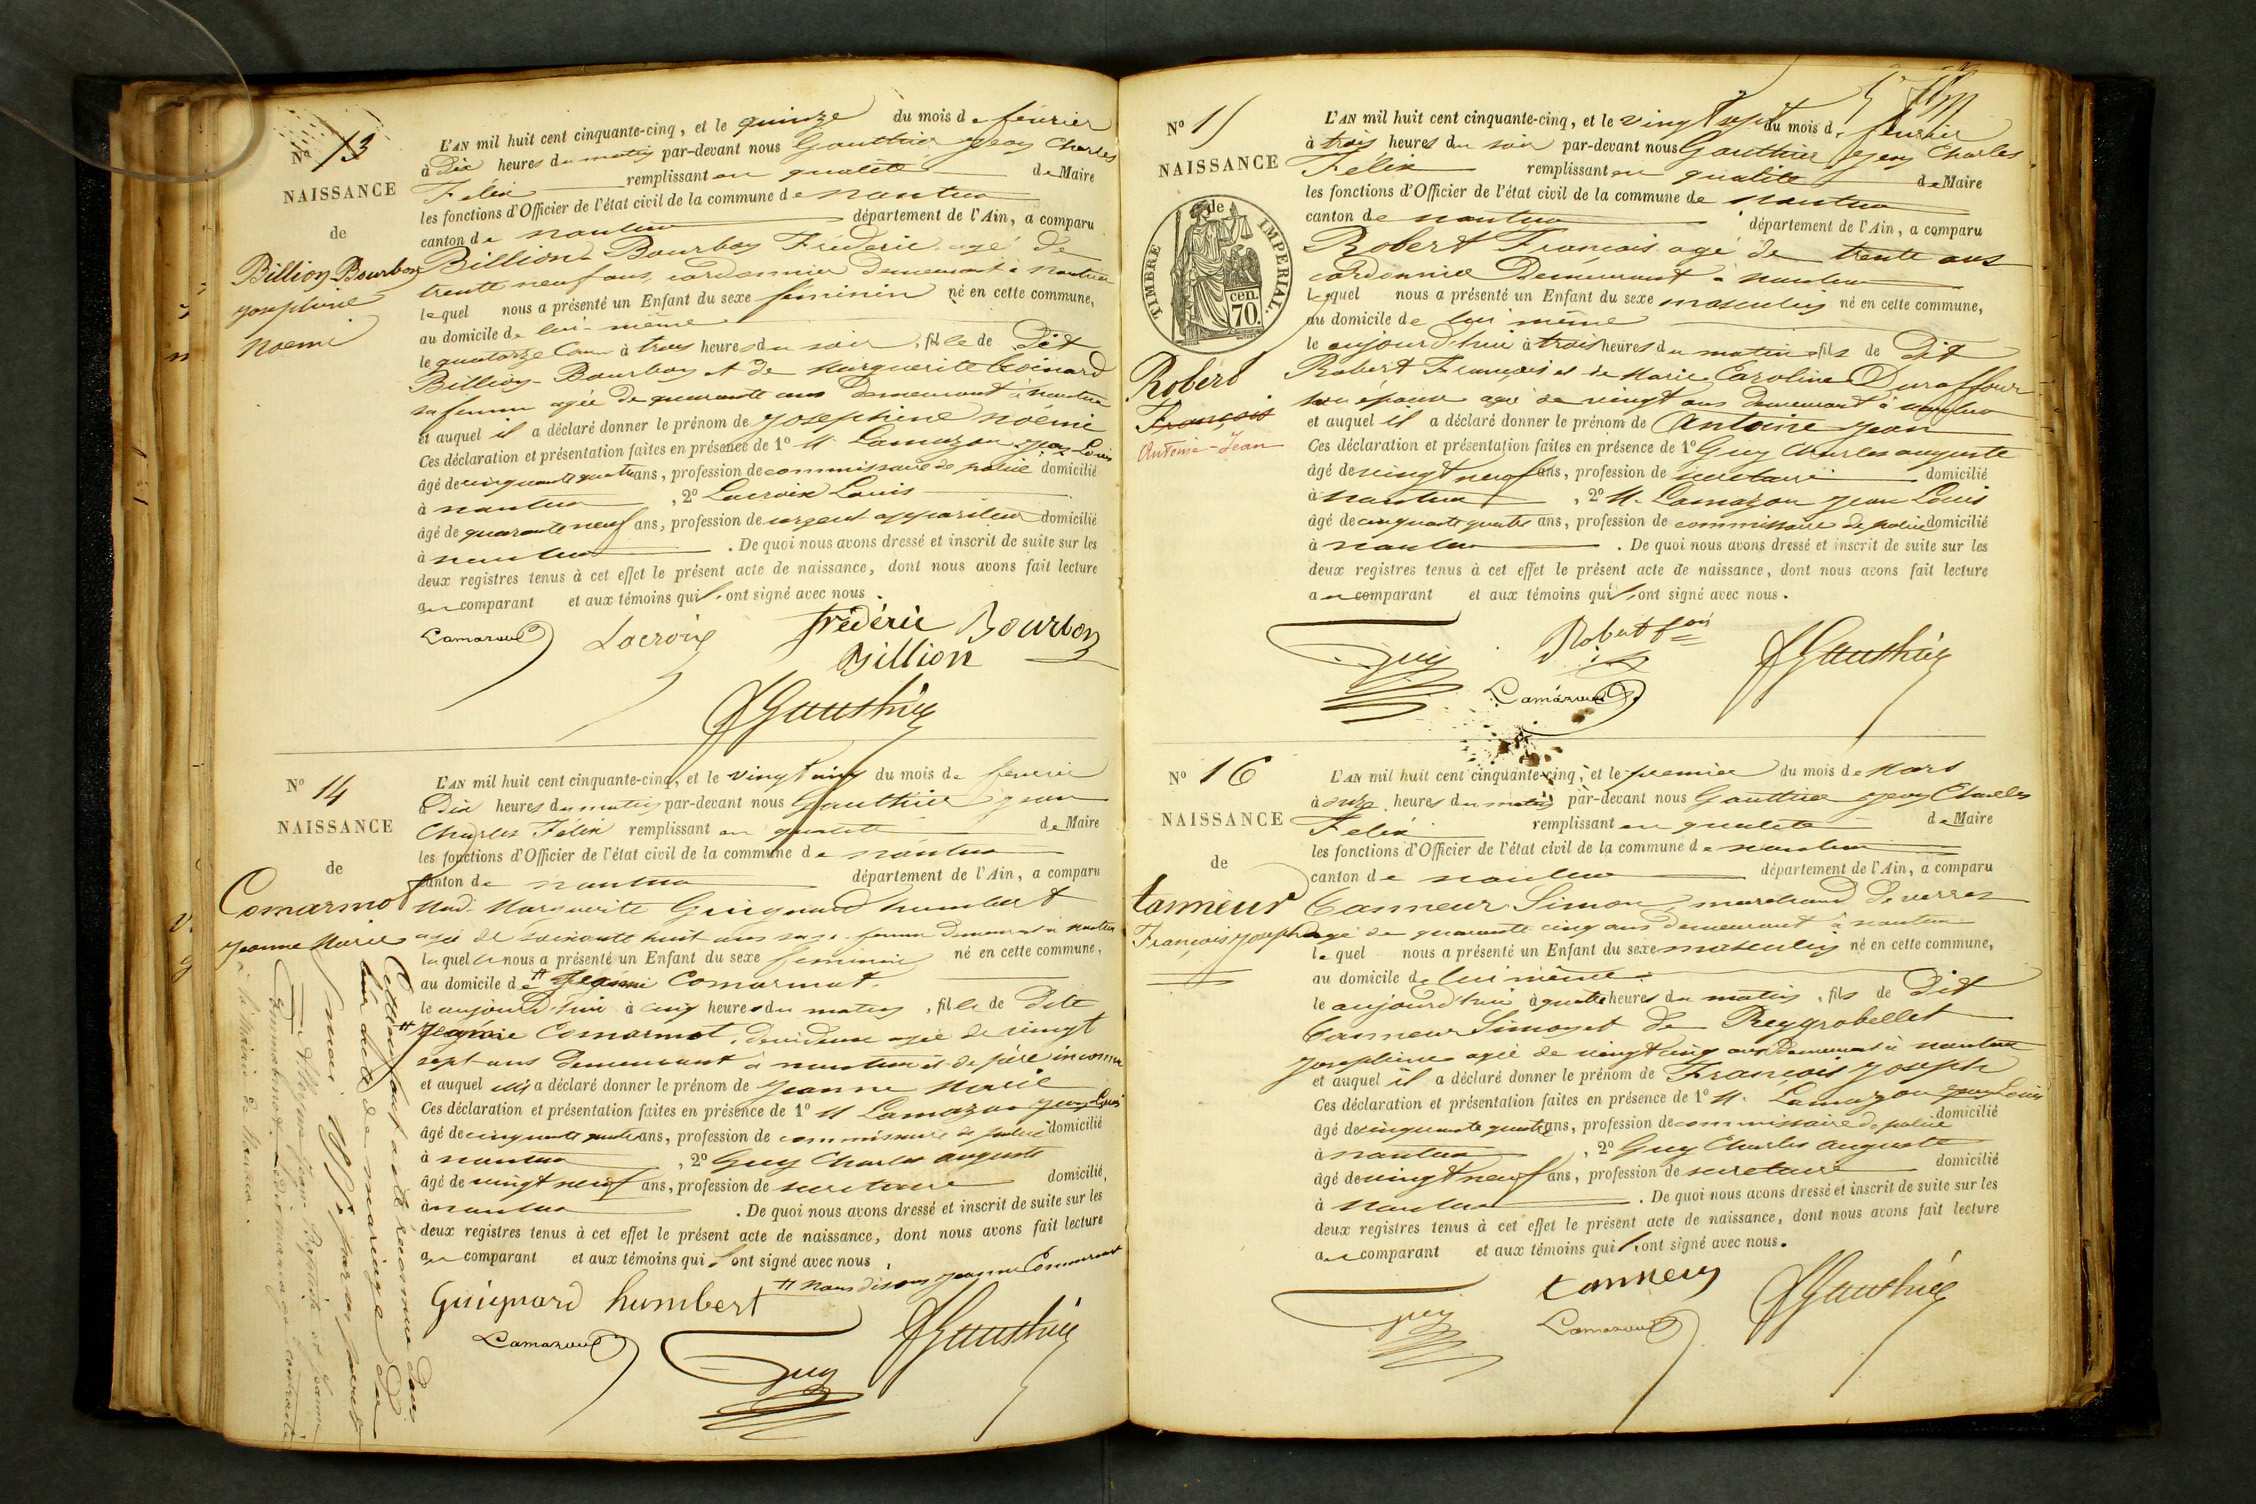 N° 13
NAISSANCE
de
Billion Bourbon
Josephine
Noemi
L'AN mil huit cent cinquante-cinq, et le quinze du mois de février
à Dix heures du matin par-devant nous Gauthier Jean Charles
Félix remplissant en qualité de Maire
les fonctions d'Officier de l'état civil de la commune de nantua
canton de nantua département de l'Ain, a comparu
Billion-Bourbon Fréderic agé de
trente neuf ans, cordonnier demeurant à nantua
lequel nous a présenté un Enfant du sexe féminin né en cette commune,
au domicile de lui-même
le quatorze à trois heures du soir, fille de Dit
Billion-Bourbon et de Marguerite
sa femme agée de quarante ans demeurant à nantua
et auquel il a déclaré donner le prénom de Josephine Noémie
Ces déclaration et présentation faites en présence de 1° M. Lamazou Jean Louis
âgé de cinquante quatre ans, profession de commissaire de police domicilié
à nantua, 2° Lacroix Louis
âgé de quarante neuf ans, profession de sergent appariteur domicilié
à nantua. De quoi nous avons dressé et inscrit de suite sur les
deux registres tenus à cet effet le présent acte de naissance, dont nous avons fait lecture
au comparant et aux témoins qui l'ont signé avec nous.
Lamazou Lacroix frédéric Bourbon
Billion
Gauthier
N° 14
NAISSANCE
de
Comarmot
Jeanne Marie
L'AN mil huit cent cinquante-cinq, et le vingt cinq du mois de fevrier
à Dix heures du matin par-devant nous Gauthier Jean
Charles Félix remplissant en qualité de Maire
les fonctions d'Officier de l'état civil de la commune de nantua
canton de nantua département de l'Ain, a comparu
Mad. Marguerite Guignard humbert
agée de soixante huit ans sage-femme demeurant à nantua
laquelle nous a présenté un Enfant du sexe feminin né en cette commune,
au domicile de # Comarmot.
le aujourd'hui à cinq heures du matin, fille de Dite
# Comarmot, devideuse agée de vingt
sept ans demeurant à nantua et de père inconnu
et auquel elle a déclaré donner le prénom de Jeanne Marie
Ces déclaration et présentation faites en présence de 1° M Lamazou Jean Louis
âgé de cinquante quatre ans, profession de commissaire de police domicilié
à nantua, 2° Guy Charles auguste
âgé de vingt neuf ans, profession de secretaire domicilié,
à nantua. De quoi nous avons dressé et inscrit de suite sur les
deux registres tenus à cet effet le présent acte de naissance, dont nous avons fait lecture
au comparant et aux témoins qui l'ont signé avec nous,
# Nous disons Jeanne Comarmot
Guignard humbert
Lamazou Guy Gauthier
Cette enfant a été reconnue dans
l'acte de mariage du
par
Jean Baptiste et Jeanne
Comarmot mariage contracté
à la Mairie de Nantua.
N° 15
NAISSANCE
de
TIMBRE IMPERIAL.
70 cen.
Robert
François
Antoine-Jean
L'AN mil huit cent cinquante-cinq, et le vingt sept du mois de fevrier
à trois heures du soir par-devant nous Gauthier Jean Charles
Félix remplissant en qualité de Maire
les fonctions d'Officier de l'état civil de la commune de nantua
canton de nantua département de l'Ain, a comparu
Robert François agé de trente ans
cordonnier Demeurant à nantua
lequel nous a présenté un Enfant du sexe masculin né en cette commune,
au domicile de lui même
le aujourd'hui à trois heures du matin, fils de Dit
Robert François et de Marie Caroline Duraffour
son épouse agée de vingt ans demeurant à nantua
et auquel il a déclaré donner le prénom de Antoine Jean
Ces déclaration et présentation faites en présence de 1° Guy Charles auguste
âgé de vingt neuf ans, profession de secretaire domicilié
à nantua, 2° M. Lamazou Jean Louis
âgé de cinquante quatre ans, profession de commissaire de police domicilié
à nantua. De quoi nous avons dressé et inscrit de suite sur les
deux registres tenus à cet effet le présent acte de naissance, dont nous avons fait lecture
au comparant et aux témoins qui l'ont signé avec nous.
Guy Robert fois Gauthier
Lamazou
N° 16
NAISSANCE
de
tanneur
François Joseph
L'AN mil huit cent cinquante-cinq, et le premier du mois de Mars
à onze heures du matin par-devant nous Gauthier Jean Charles
Felix remplissant en qualité de Maire
les fonctions d'Officier de l'état civil de la commune de nantua
canton de nantua département de l'Ain, a comparu
Tanneur Simon, marchand de verres
agé de quarante cinq ans demeurant à nantua
lequel nous a présenté un Enfant du sexe masculin né en cette commune,
au domicile de lui même
le aujourd'hui à quatre heures du matin, fils de Dit
Tanneur Simon et de Reygrobellet
Josephine agée de vingt cinq ans demeurant à nantua
et auquel il a déclaré donner le prénom de François Joseph
Ces déclaration et présentation faites en présence de 1° M. Lamazou Jean Louis
âgé de cinquante quatre ans, profession de commissaire de police domicilié
à nantua, 2° Guy Charles auguste
âgé de vingt neuf ans, profession de secretaire domicilié
à Nantua. De quoi nous avons dressé et inscrit de suite sur les
deux registres tenus à cet effet le présent acte de naissance, dont nous avons fait lecture
au comparant et aux témoins qui l'ont signé avec nous.
Guy tanneur Gauthier
Lamazou